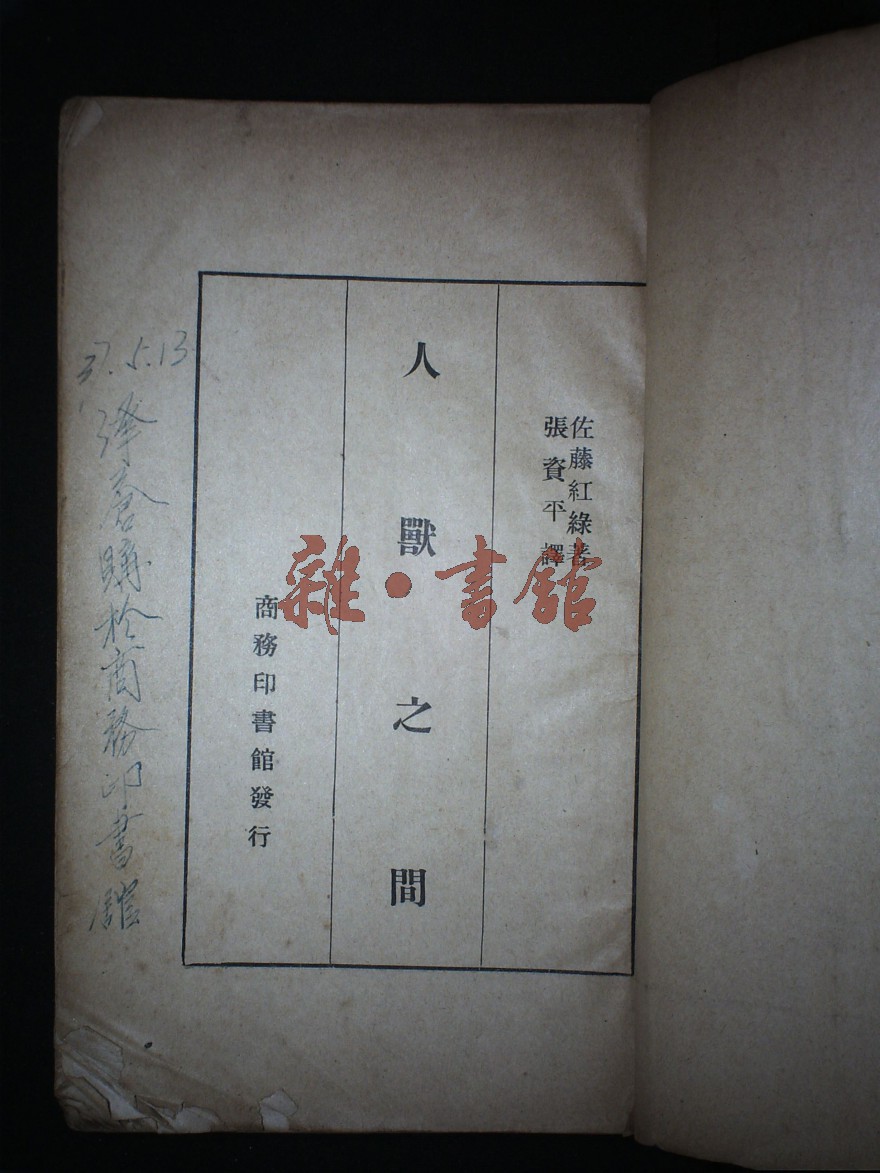 佐藤紅綠著
張資平譯
人獸之間
商務印書館發行
37.5.13
購於商務印書館
雜·書館